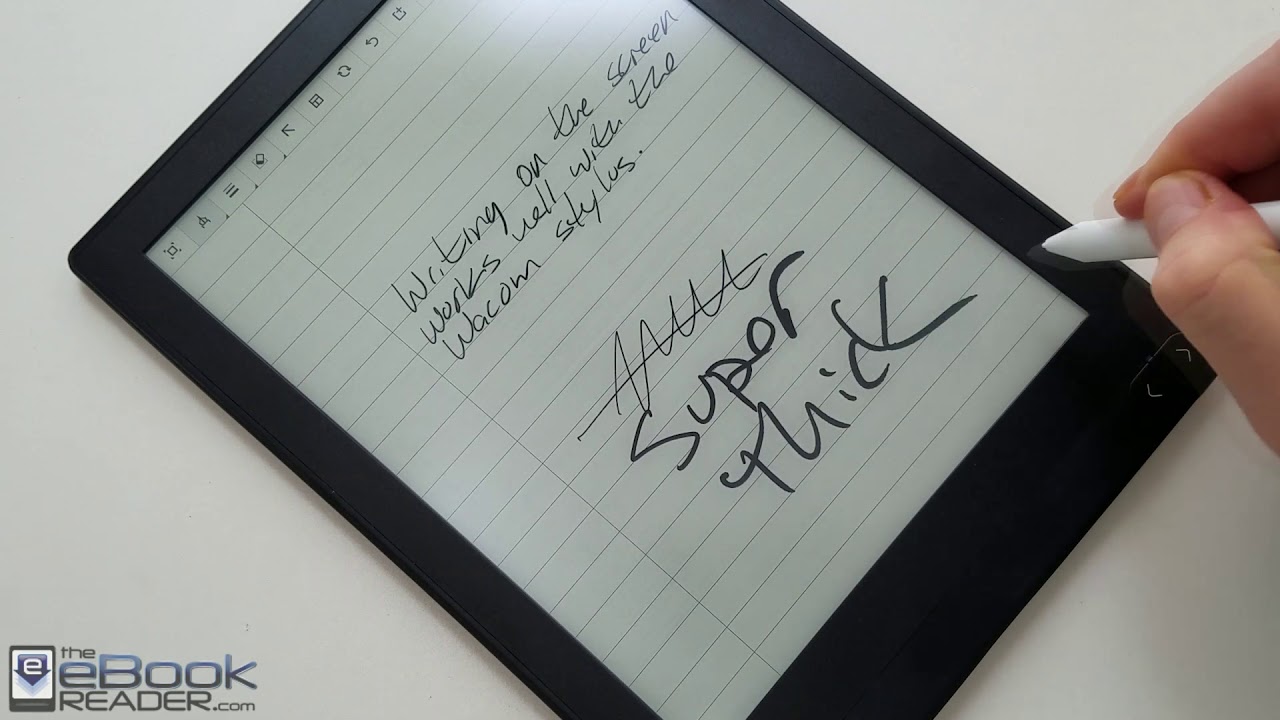 Writing on the screen
works well with the
Wacom stylus.
Super
thick
the
eBook
READER.com